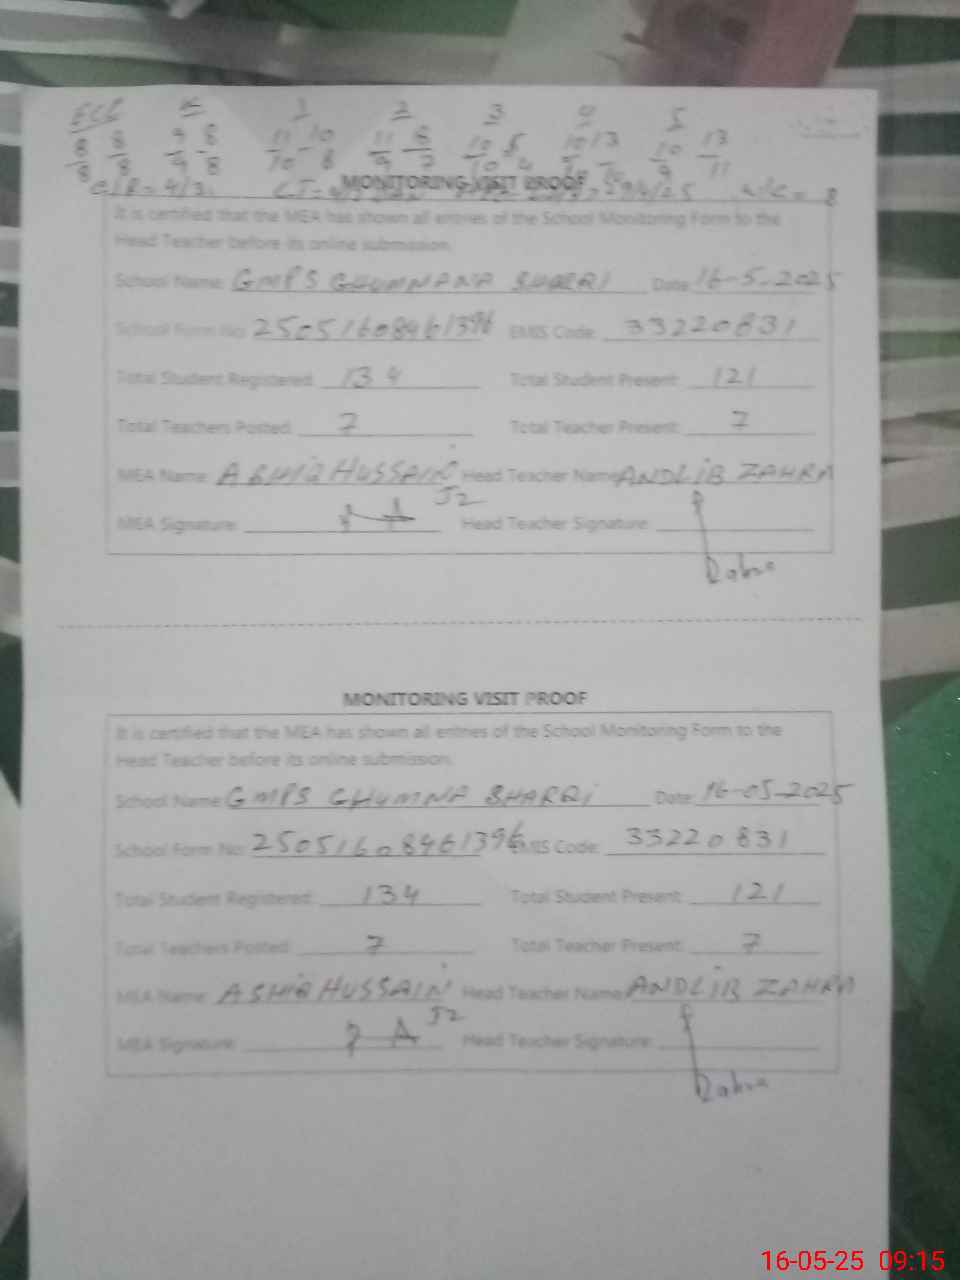 ECE K 1 2 3 4 5
8 8 9 8 11 10 11 8 10 5 10 13 10 13
8 8 9 8 10 8 9 7 10 4 9 11
MONITORING VISIT PROOF
It is certified that the MEA has shown all entries of the School Monitoring Form to the
Head Teacher before its online submission.
School Name: GMPS GHUMNANA BHARRI Date: 16-5-2025
School Form No: 25051608461396 EMIS Code: 33220831
Total Student Registered: 134 Total Student Present: 121
Total Teachers Posted: 7 Total Teacher Present: 7
MEA Name: ASHIQ HUSSAIN Head Teacher Name: ANDLIB ZAHRA
J2
MEA Signature: Head Teacher Signature:
MONITORING VISIT PROOF
It is certified that the MEA has shown all entries of the School Monitoring Form to the
Head Teacher before its online submission.
School Name: GMPS GHUMNA BHARRI Date: 16-05-2025
School Form No: 25051608461396 EMIS Code: 33220831
Total Student Registered: 134 Total Student Present: 121
Total Teachers Posted: 7 Total Teacher Present: 7
MEA Name: ASHIQ HUSSAIN Head Teacher Name: ANDLIB ZAHRA
J2
MEA Signature: Head Teacher Signature:
16-05-25 09:15